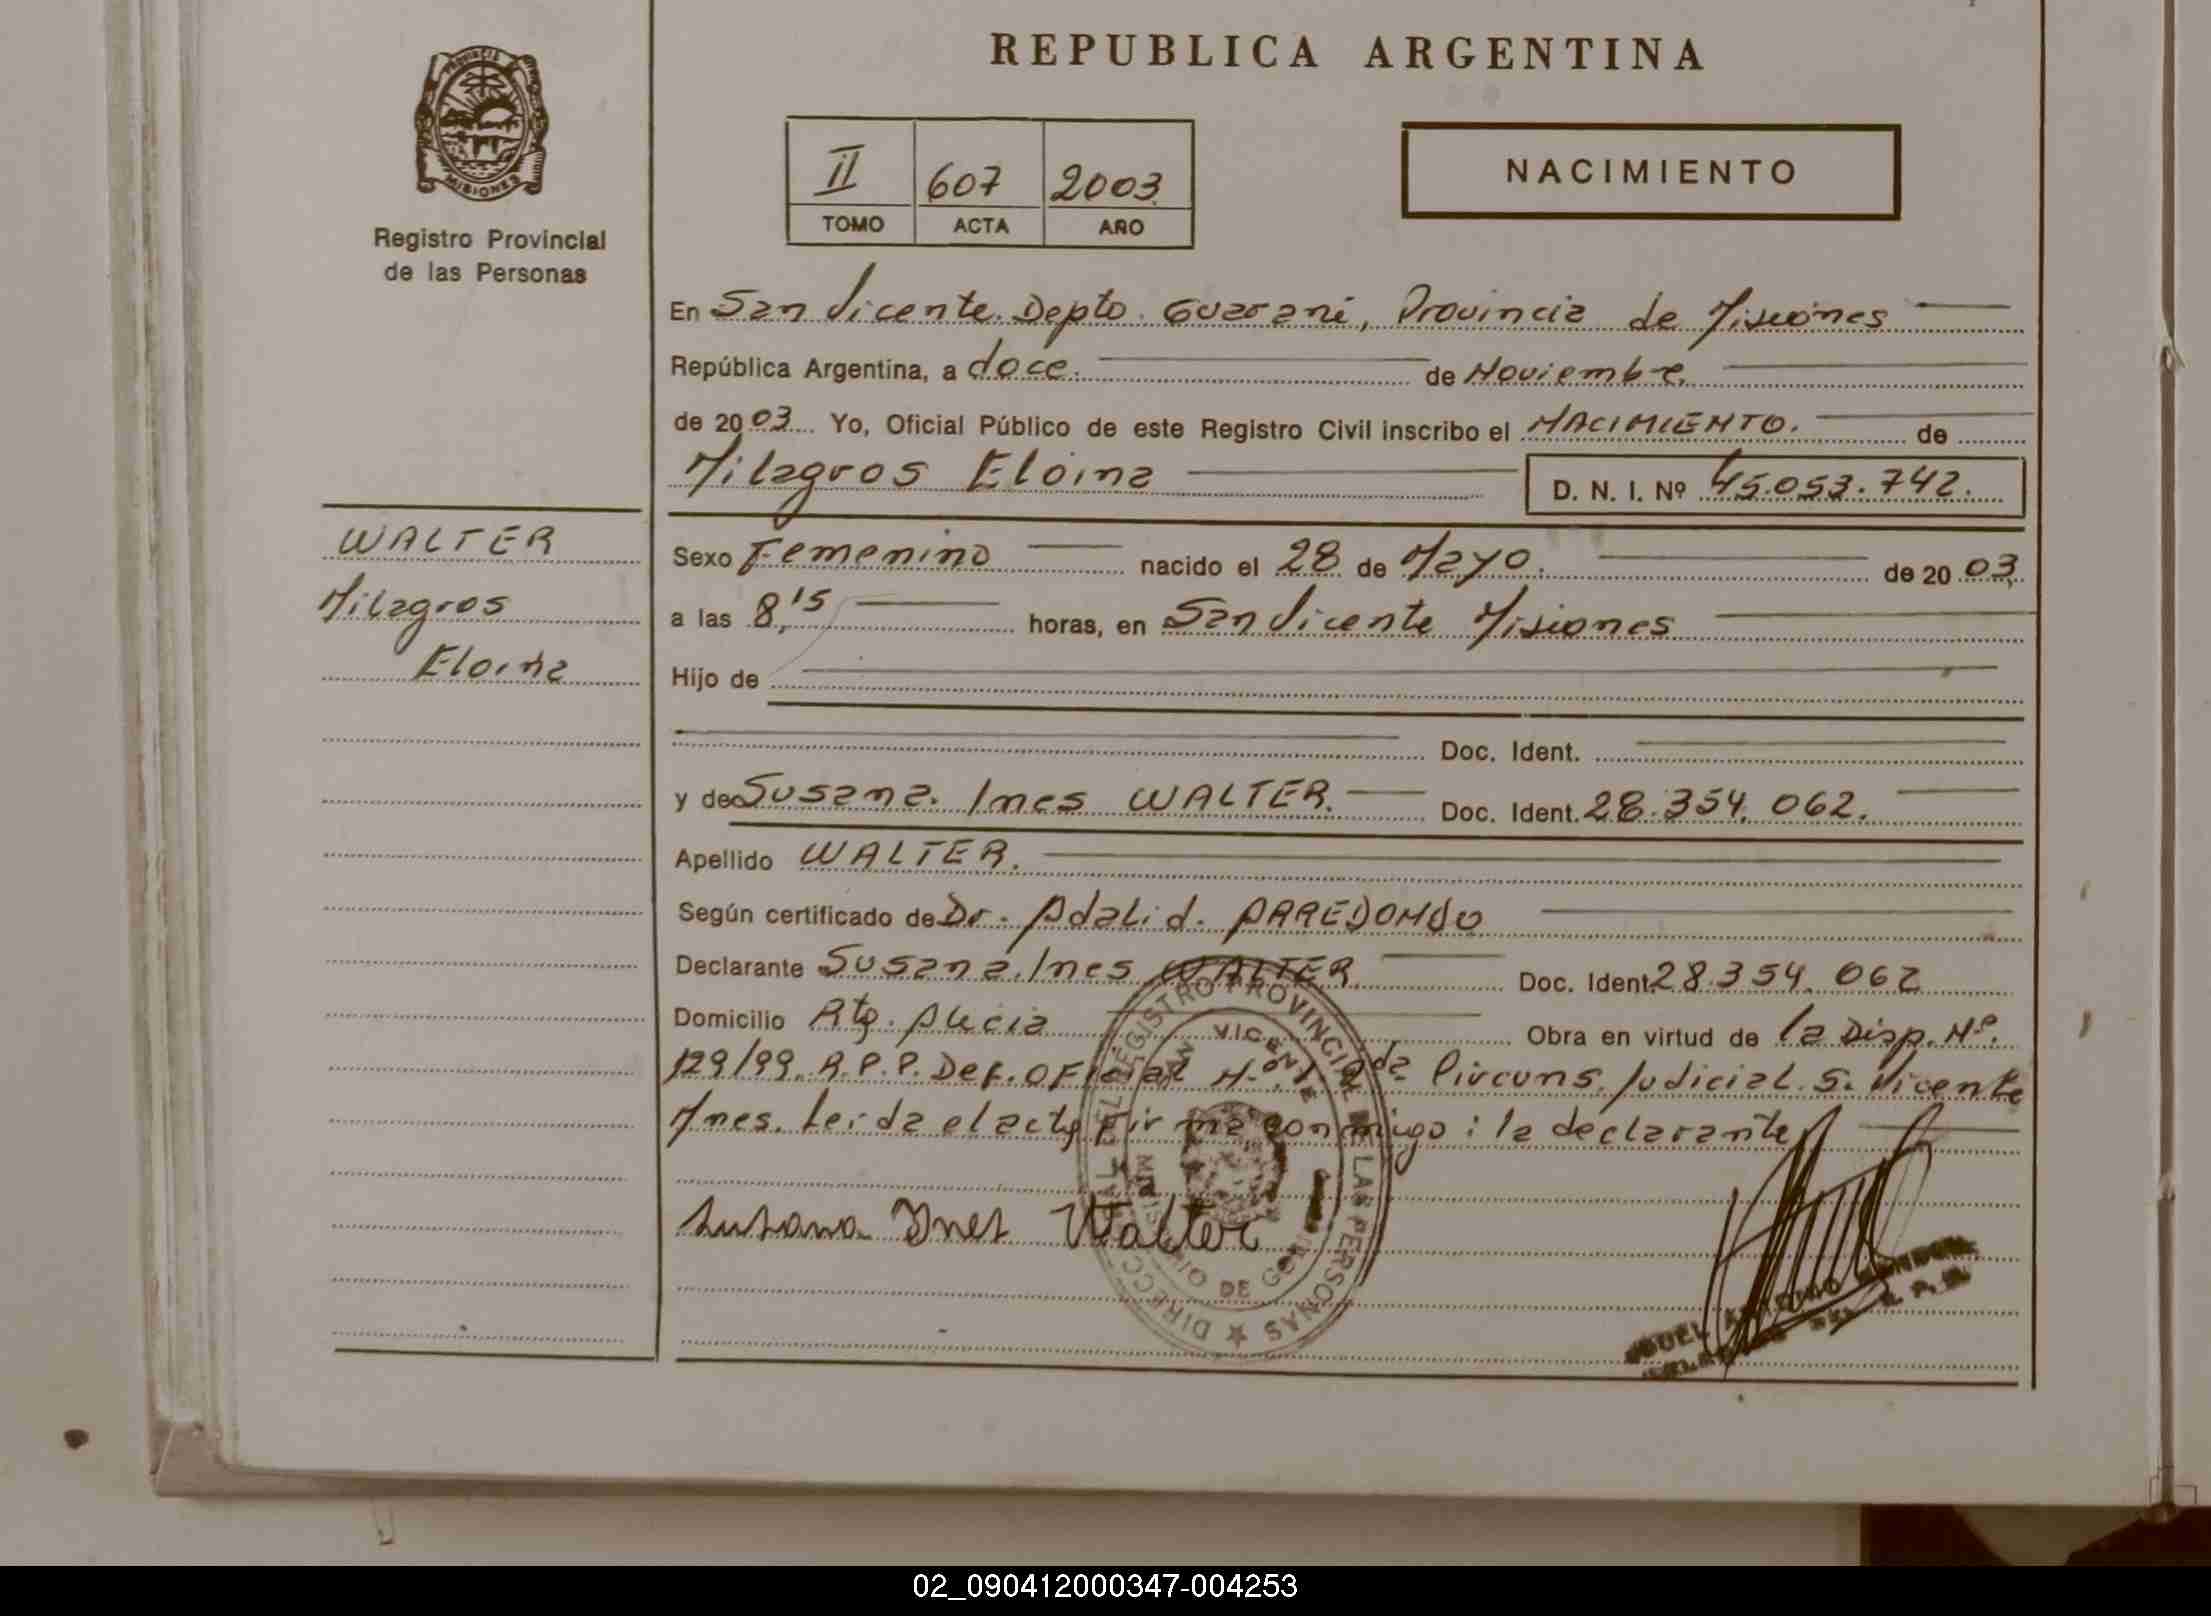 REPUBLICA ARGENTINA
PROVINCIA
MISIONES
Registro Provincial
de las Personas
II 607 2003
TOMO ACTA AÑO
NACIMIENTO
En San Vicente. Depto. Guarani, Provincia de Misiones
República Argentina, a doce. de Noviembre
de 2003 Yo, Oficial Público de este Registro Civil inscribo el NACIMIENTO. de
Milagros Eloina D. N. I. Nº 45.053.742.
WALTER
Milagros
Eloina
Sexo Femenino nacido el 28 de Mayo. de 2003
a las 8,15 horas, en San Vicente Misiones
Hijo de
Doc. Ident.
y de Susana. Ines WALTER. Doc. Ident. 28.354.062.
Apellido WALTER.
Según certificado de Dr. Adalid.
Declarante Susana Ines WALTER Doc. Ident. 28.354.062
Domicilio Alicia Obra en virtud de la Disp. Nº.
129/99. R.P.P. Def. Oficial Nº 1 2da. Circuns. Judicial. S. Vicente
Mnes. Leida el acta firma conmigo: la declarante
Susana Ines Walter
DEL REGISTRO PROVINCIAL DE LAS PERSONAS
VICENTE
DE
02_090412000347-004253